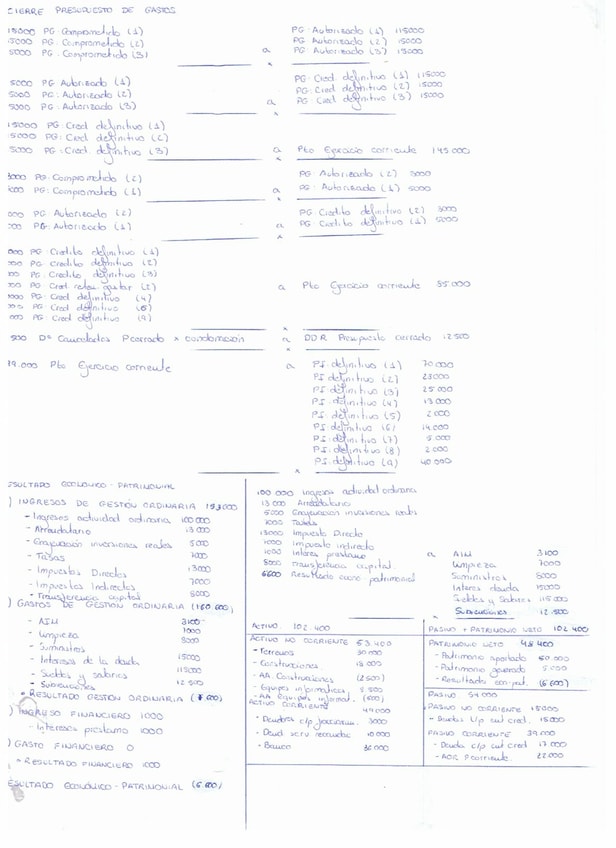 CIERRE PRESUPUESTO DE GASTOS
15000 PG: Comprometido (1)
PG: Autorizado (1) 115000
5000 PG: Comprometido (2)
PG: Autorizado (2) 15000
5000 PG: Comprometido (3) a PG: Autorizado (3) 15000
5000 PG: Autorizado (1)
PG: Cred. definitivo (1) 115000
5000 PG: Autorizado (2)
PG: Cred definitivo (2) 15000
5000 PG: Autorizado (3) a PG: Cred definitivo (3) 15000
15000 PG: Cred definitivo (1)
15000 PG: Cred definitivo (2)
5000 PG: Cred definitivo (3) a Pto Ejercicio corriente 145000
3000 PG: Comprometido (2)
PG: Autorizado (2) 3000
PG: Comprometido (1) a PG: Autorizado (1) 5000
000 PG Autorizado (2)
PG Credito definitivo (2) 3000
PG: Autorizado (1) a PG Credito definitivo (1) 5000
000 PG: Credito definitivo (1)
PG Credito definitivo (2)
PG: Credito definitivo (3)
PG: Cred (2) a Pto Ejercicio corriente 85000
PG: Cred definitivo (4)
PG: Cred definitivo
PG: Cred definitivo (9)
500 Dº Cancelados P.cerrado x a DDR Presupuesto cerrado 12500
79.000 Pto Ejercicio corriente a PI: definitivo (1) 70000
PI: definitivo (2) 23000
PI: definitivo (3) 25000
PI: definitivo (4) 13000
PI: definitivo (5) 2000
PI definitivo (6) 14000
PI: definitivo (7) 5000
PI: definitivo (8) 2000
PI: definitivo (9) 40000
ESULTADO ECONÓMICO-PATRIMONIAL
) INGRESOS DE GESTIÓN ORDINARIA 153000
- Ingresos actividad ordinaria 100000
- 13000
- inversiones reales 5000
- Tasas 7000
- Impuestos Directos 13000
- Impuestos Indirectos 7000
- Transferencia capital 8000
) GASTOS DE GESTIÓN ORDINARIA (160600)
- AIM 3100
- Limpieza 7000
- Suministros 8000
- Intereses de la deuda 15000
- Sueldos y salarios 115000
- Subvenciones 12500
* RESULTADO GESTIÓN ORDINARIA
) INGRESO FINANCIERO 1000
- Intereses prestamo 1000
) GASTO FINANCIERO 0
* RESULTADO FINANCIERO 1000
ESULTADO ECONÓMICO-PATRIMONIAL (6.600)
100 000 Ingresos actividad ordinaria
13 000
5000 inversiones reales
7000 Tasas
13000 Impuesto Directo
7000 Impuesto indirecto
1000 Interes prestamo a AIM 3100
8000 Transferencia capital Limpieza 7000
6600 Resultado econo patrimonial Suministros 8000
Interes deuda 15000
Sueldos y Salarios 115000
Subvenciones 12.500
ACTIVO: 102.400
ACTIVO NO CORRIENTE 53.400
- Terrenos 30000
- Construcciones 18.000
- AA. Construcciones (2500)
- Equipos informaticos 8.500
- AA. Equipos informat. (600)
ACTIVO CORRIENTE 49.000
- Deudores c/p 3000
- Deud 10.000
- Banco 36.000
PASIVO + PATRIMONIO NETO 102.400
PATRIMONIO NETO 48.400
- Patrimonio aportado 50.000
- Patrimonio generado 5.000
- Resultados (6.600)
PASIVO 54.000
PASIVO NO CORRIENTE 15.000
- Deudas l/p ent cred. 15.000
PASIVO CORRIENTE 39.000
- Deuda c/p ent cred 17.000
- AOR P.corriente. 22.000